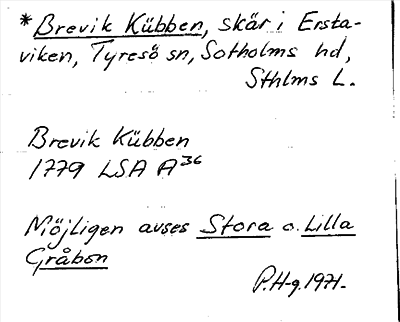 *Brevik Kübben, skär i Ersta-
viken, Tyresö sn, Sotholms hd,
Sthlms L.
Brevik Kübben
1779 LSA A³⁶
Möjligen avses Stora o. Lilla
Gråbon
P.H-g. 1971.